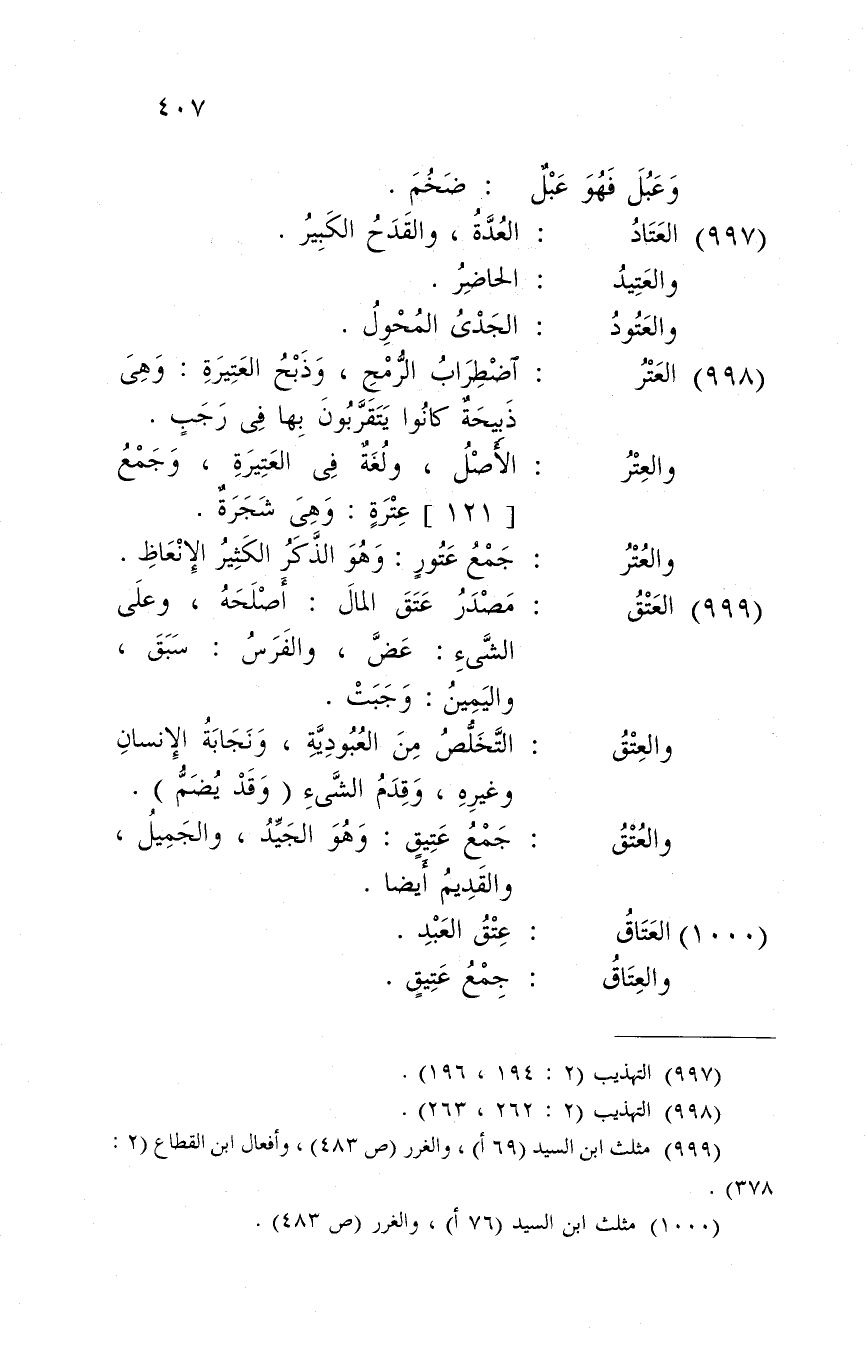 ٤٠٧
وَعَبُلَ فَهُوَ عَبْلٌ : ضَخُمَ .
(٩٩٧) العَتَادُ : العُدَّةُ ، والقَدَحُ الكَبِيرُ .
والعَتِيدُ : الحاضِرُ .
والعَتُودُ : الجَدْىُ المُحْوِلُ .
(٩٩٨) العَتْرُ : ٱضْطِرَابُ الرُّمْحِ ، وَذَبْحُ العَتِيرَةِ : وَهِىَ
ذَبِيحَةٌ كانُوا يَتَقَرَّبُونَ بِها فِى رَجَبٍ .
والعِتْرُ : الأَصْلُ ، ولُغَةٌ فِى العَتِيرَةِ ، وَجَمْعُ
[ ١٢١ ] عِتْرَةٍ : وَهِىَ شَجَرَةٌ .
والعُتْرُ : جَمْعُ عَتُورٍ : وَهُوَ الذَّكَرُ الكَثِيرُ الإِنْعَاظِ .
(٩٩٩) العَتْقُ : مَصْدَرُ عَتَقَ المالَ : أَصْلَحَهُ ، وعلَى
الشَّىءِ : عَضَّ ، والفَرَسُ : سَبَقَ ،
واليَمِينُ : وَجَبَتْ .
والعِتْقُ : التَّخَلُّصُ مِنَ العُبُودِيَّةِ ، وَنَجَابَةُ الإِنسانِ
وغيرِهِ ، وَقِدَمُ الشَّىءِ ( وَقَدْ يُضَمُّ ) .
والعُتْقُ : جَمْعُ عَتِيقٍ : وَهُوَ الجَيِّدُ ، والجَمِيلُ ،
والقَدِيمُ أَيضا .
(١٠٠٠) العَتَاقُ : عِتْقُ العَبْدِ .
والعِتَاقُ : جِمْعُ عَتِيقٍ .
(٩٩٧) التهذيب (٢ : ١٩٤ ، ١٩٦) .
(٩٩٨) التهذيب (٢ : ٢٦٢ ، ٢٦٣) .
(٩٩٩) مثلث ابن السيد (٦٩ أ) ، والغرر (ص ٤٨٣) ، وأفعال ابن القطاع (٢ :
٣٧٨) .
(١٠٠٠) مثلث ابن السيد (٧٦ أ) ، والغرر (ص ٤٨٣) .